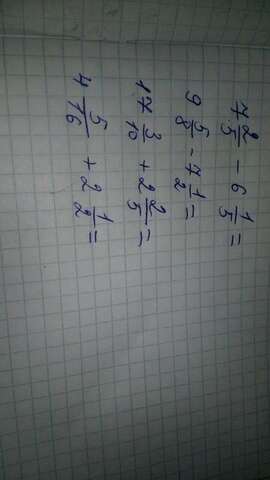 7 2/5 - 6 1/5 =
9 5/8 - 7 1/2 =
17 3/10 + 2 2/5 =
4 5/16 + 2 1/2 =